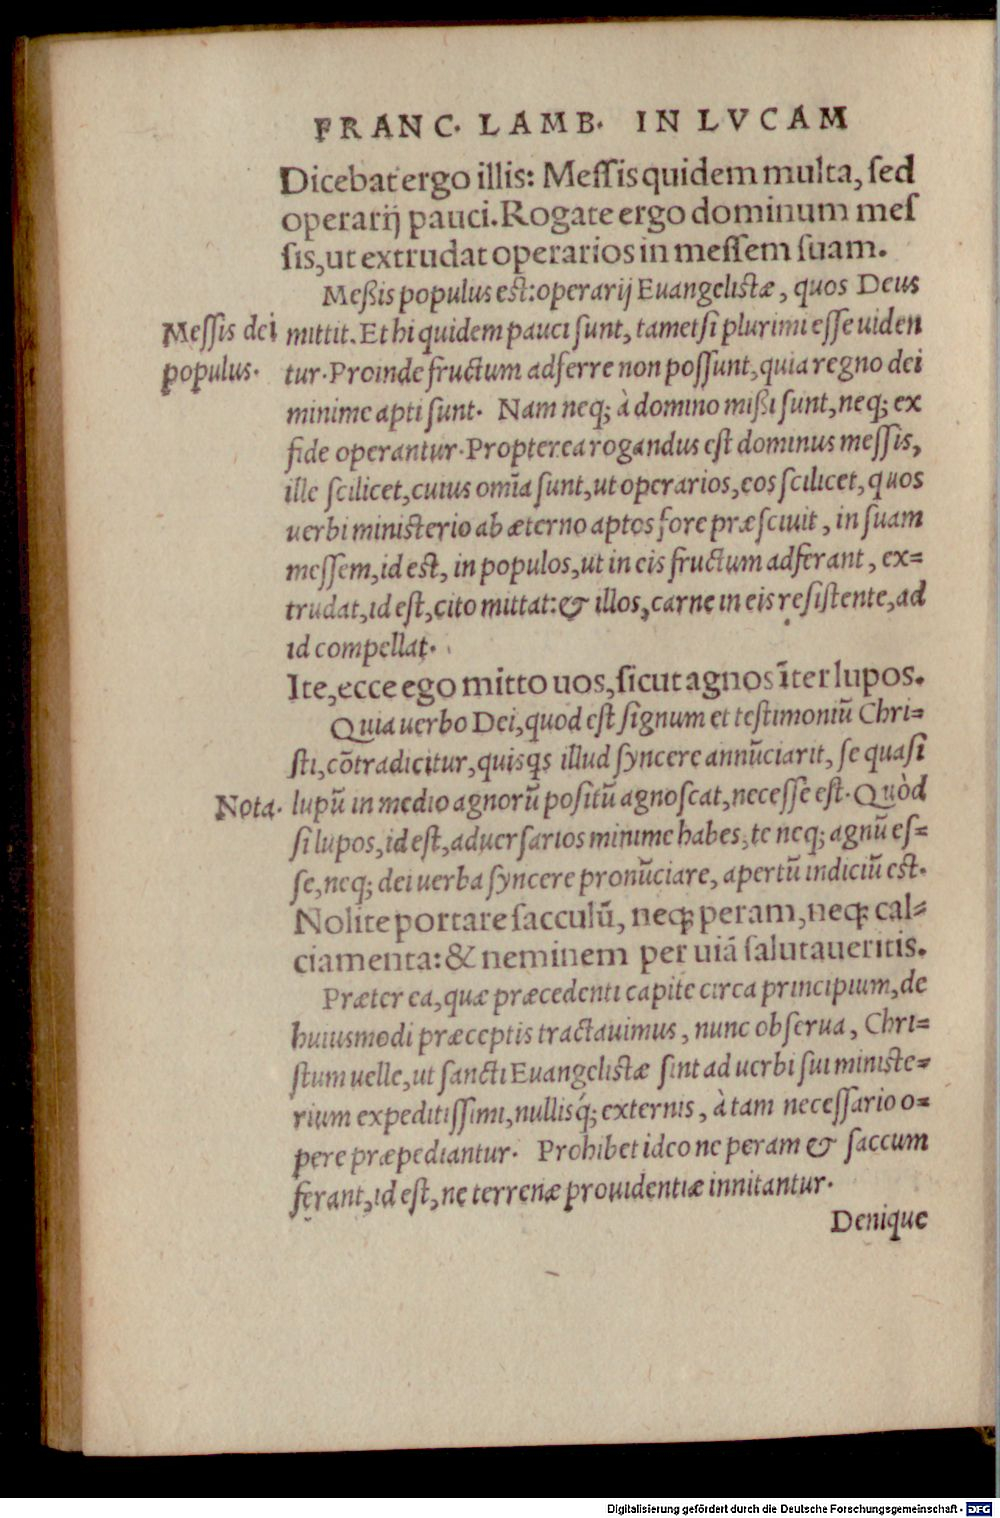 FRANC. LAMB. IN LVCAM
Dicebat ergo illis: Meſſis quidem multa, ſed
operarij pauci. Rogate ergo dominum meſ
ſis, ut extrudat operarios in meſſem ſuam.
Meßis populus eſt: operarij Euangeliſtæ, quos Deus
Meſſis dei
populus.
mittit. Et hi quidem pauci ſunt, tametſi plurimi eſſe uiden
tur. Proinde fructum adferre non poſſunt, quia regno dei
minime apti ſunt. Nam neq; à domino mißi ſunt, neq; ex
fide operantur. Propterea rogandus eſt dominus meſſis,
ille ſcilicet, cuius omīa ſunt, ut operarios, eos ſcilicet, quos
uerbi miniſterio ab æterno aptos fore præſciuit, in ſuam
meſſem, id eſt, in populos, ut in eis fructum adferant, ex=
trudat, id eſt, cito mittat: & illos, carne in eis reſiſtente, ad
id compellat.
Ite, ecce ego mitto uos, ſicut agnos īter lupos.
Quia uerbo Dei, quod eſt ſignum et teſtimoniū Chri=
ſti, cōtradicitur, quisqs illud ſyncere annūciarit, ſe quaſi
Nota.
lupū in medio agnorū poſitū agnoſcat, neceſſe eſt. Quòd
ſi lupos, id eſt, aduerſarios minime habes, te neq; agnū eſ=
ſe, neq; dei uerba ſyncere pronūciare, apertū indiciū eſt.
Nolite portare ſacculū, neq; peram, neq; cal=
ciamenta: & neminem per uiā ſalutaueritis.
Præter ea, quæ præcedenti capite circa principium, de
huiusmodi præceptis tractauimus, nunc obſerua, Chri=
ſtum uelle, ut ſancti Euangeliſtæ ſint ad uerbi ſui miniſte=
rium expeditiſſimi, nullisq́; externis, à tam neceſſario o=
pere præpediantur. Prohibet ideo ne peram & ſaccum
ferant, id eſt, ne terrenæ prouidentiæ innitantur.
Denique
Digitalisierung gefördert durch die Deutsche Forschungsgemeinschaft - DFG